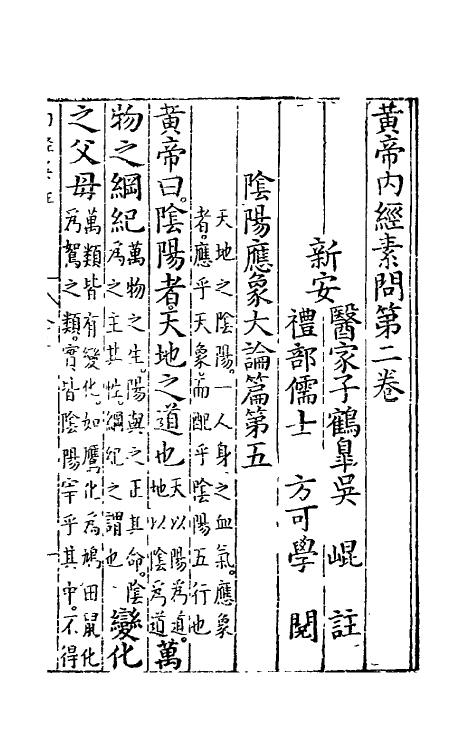 黃帝內經素問第二卷
新安
醫家子鶴皐吳 崐 註
禮部儒士 方可學 閱
陰陽應象大論篇第五
天地之陰陽。一人身之血氣。應象
者。應乎天象。而配乎陰陽五行也
黃帝曰。陰陽者。天地之道也天以陽為道。
地以陰為道萬
物之綱紀萬物之生。陽與之正其命。陰
為之主其性。綱紀之謂也變化
之父母萬類皆有變化。如鷹化為鳩。田鼠化
為鴽之類。實皆陰陽宰乎其中。不得